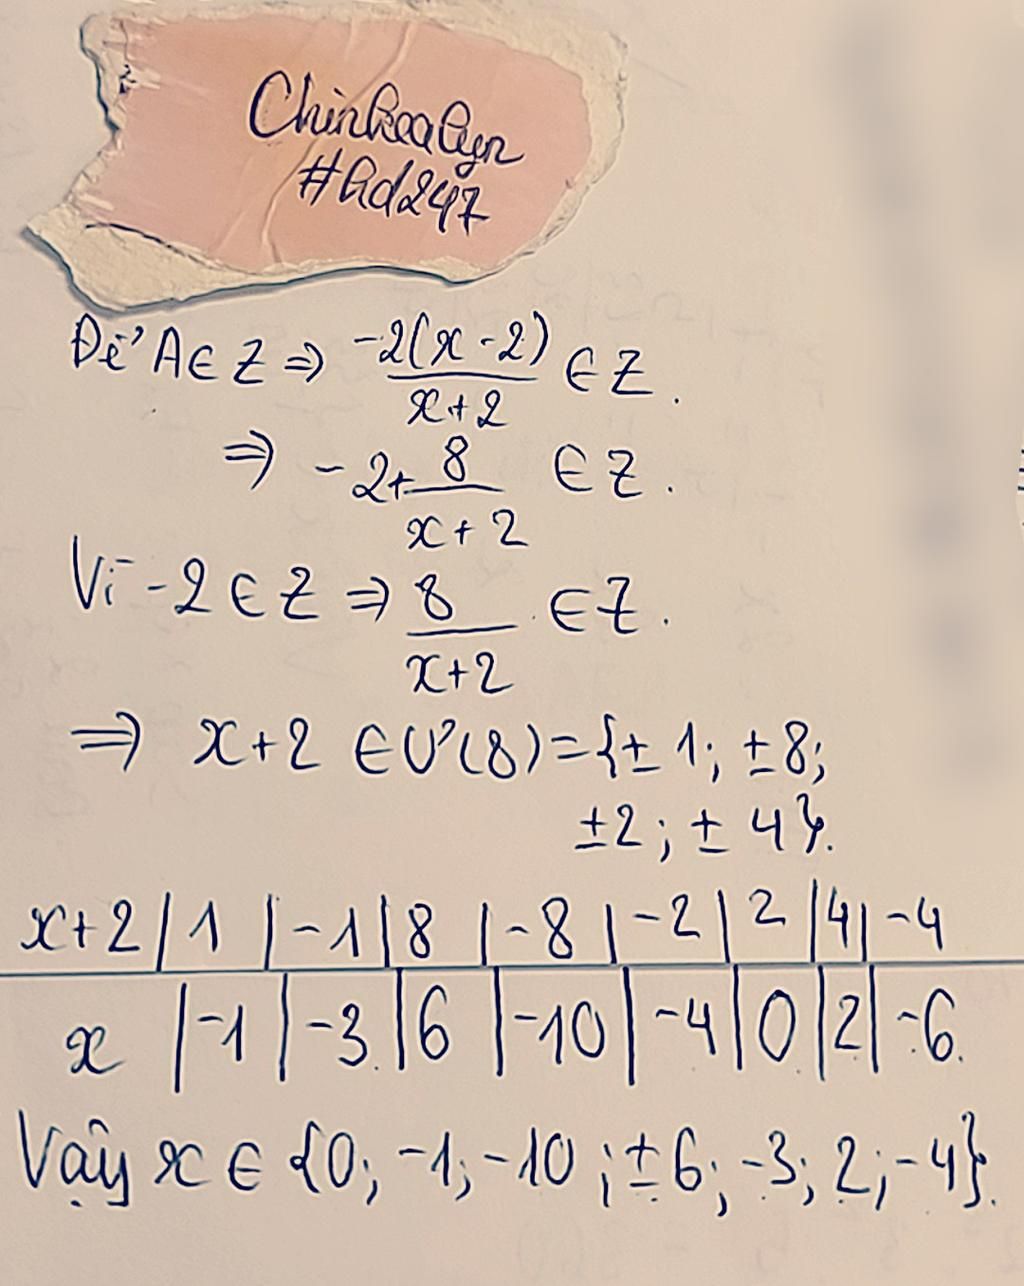 Chinkcalyn
#Ad247
Để A∈Z ⇒ -2(x-2)/x+2 ∈ Z.
⇒ -2+ 8/x+2 ∈ Z.
Vì -2∈Z ⇒ 8/x+2 ∈ Z.
⇒ x+2 ∈ Ư(8)={±1; ±8;
±2; ±4}.
x+2 | 1 | -1 | 8 | -8 | -2 | 2 | 4 | -4
x | -1 | -3 | 6 | -10 | -4 | 0 | 2 | -6
Vậy x ∈ {0; -1; -10; ±6; -3; 2; -4}.